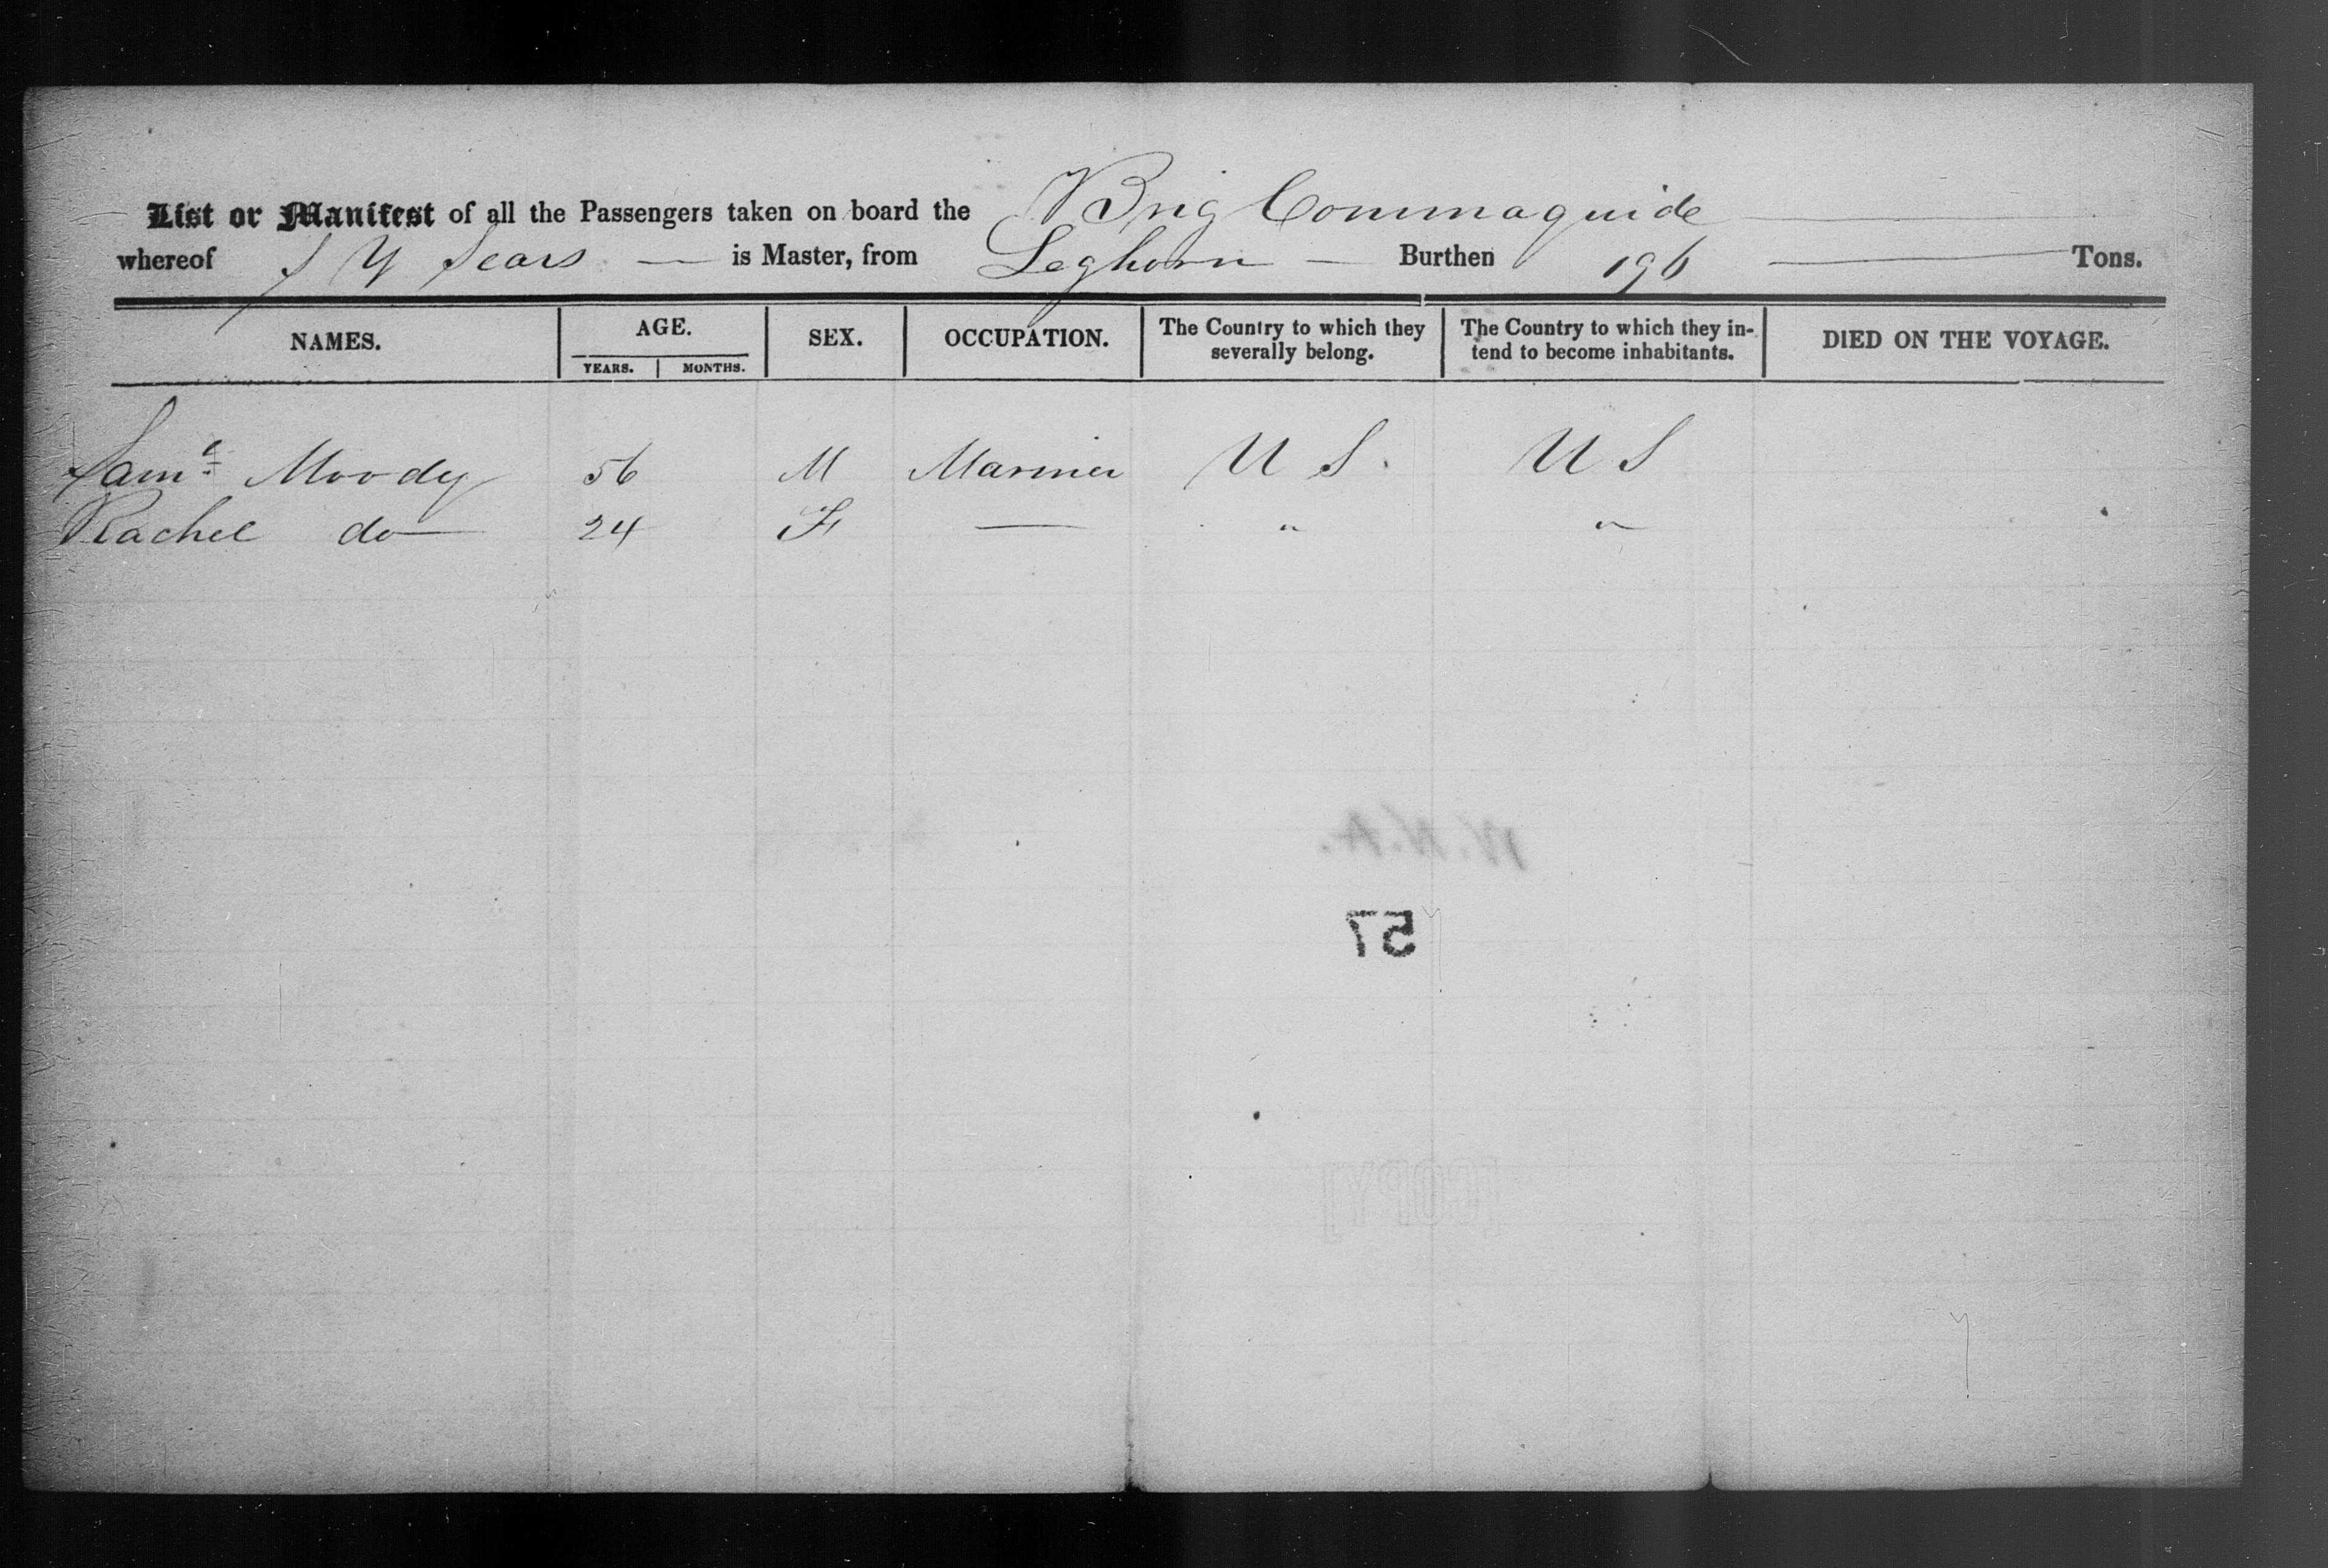 List or Manifest of all the Passengers taken on board the Brig Commaquide
whereof S Y Sears is Master, from Leghorn Burthen 196 Tons.
NAMES. AGE. SEX. OCCUPATION. The Country to which they severally belong. The Country to which they in-tend to become inhabitants. DIED ON THE VOYAGE.
YEARS. MONTHS.
Saml Moody 56 M Mariner U S. U S
Rachel do 24 F — " "
W.N.A.
57
[COPY]